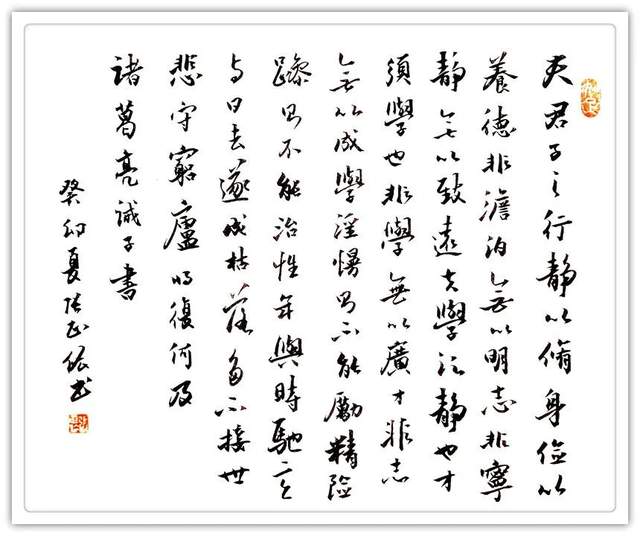 夫君子之行静以脩身儉以
養德非澹泊無以明志非寧
静無以致遠夫學須静也才
須學也非學無以廣才非志
無以成學淫慢則不能勵精險
躁則不能治性年與時馳意
与日去遂成枯落多不接世
悲守窮廬將復何及
諸葛亮誡子書
癸卯夏張正银书